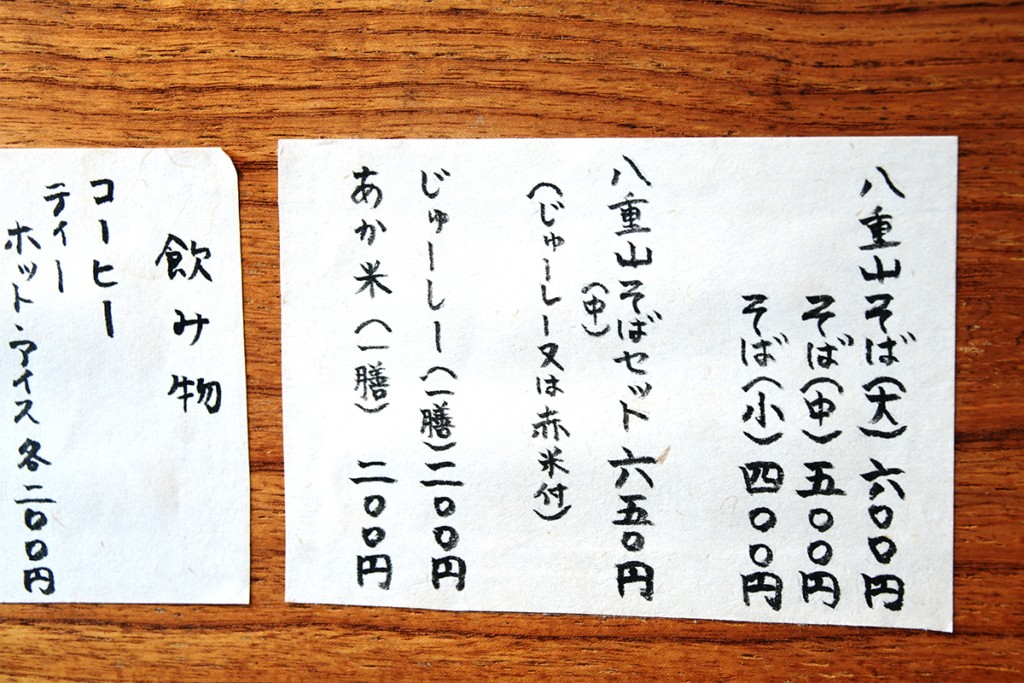 八重山そば(大)六〇〇円
そば(中)五〇〇円
そば(小)四〇〇円
八重山そばセット六五〇円
(中)
(じゅーしー又は赤米付)
じゅーしー(一膳)二〇〇円
あか米(一膳)二〇〇円
飲み物
コーヒー
ティー
ホット・アイス各二〇〇円